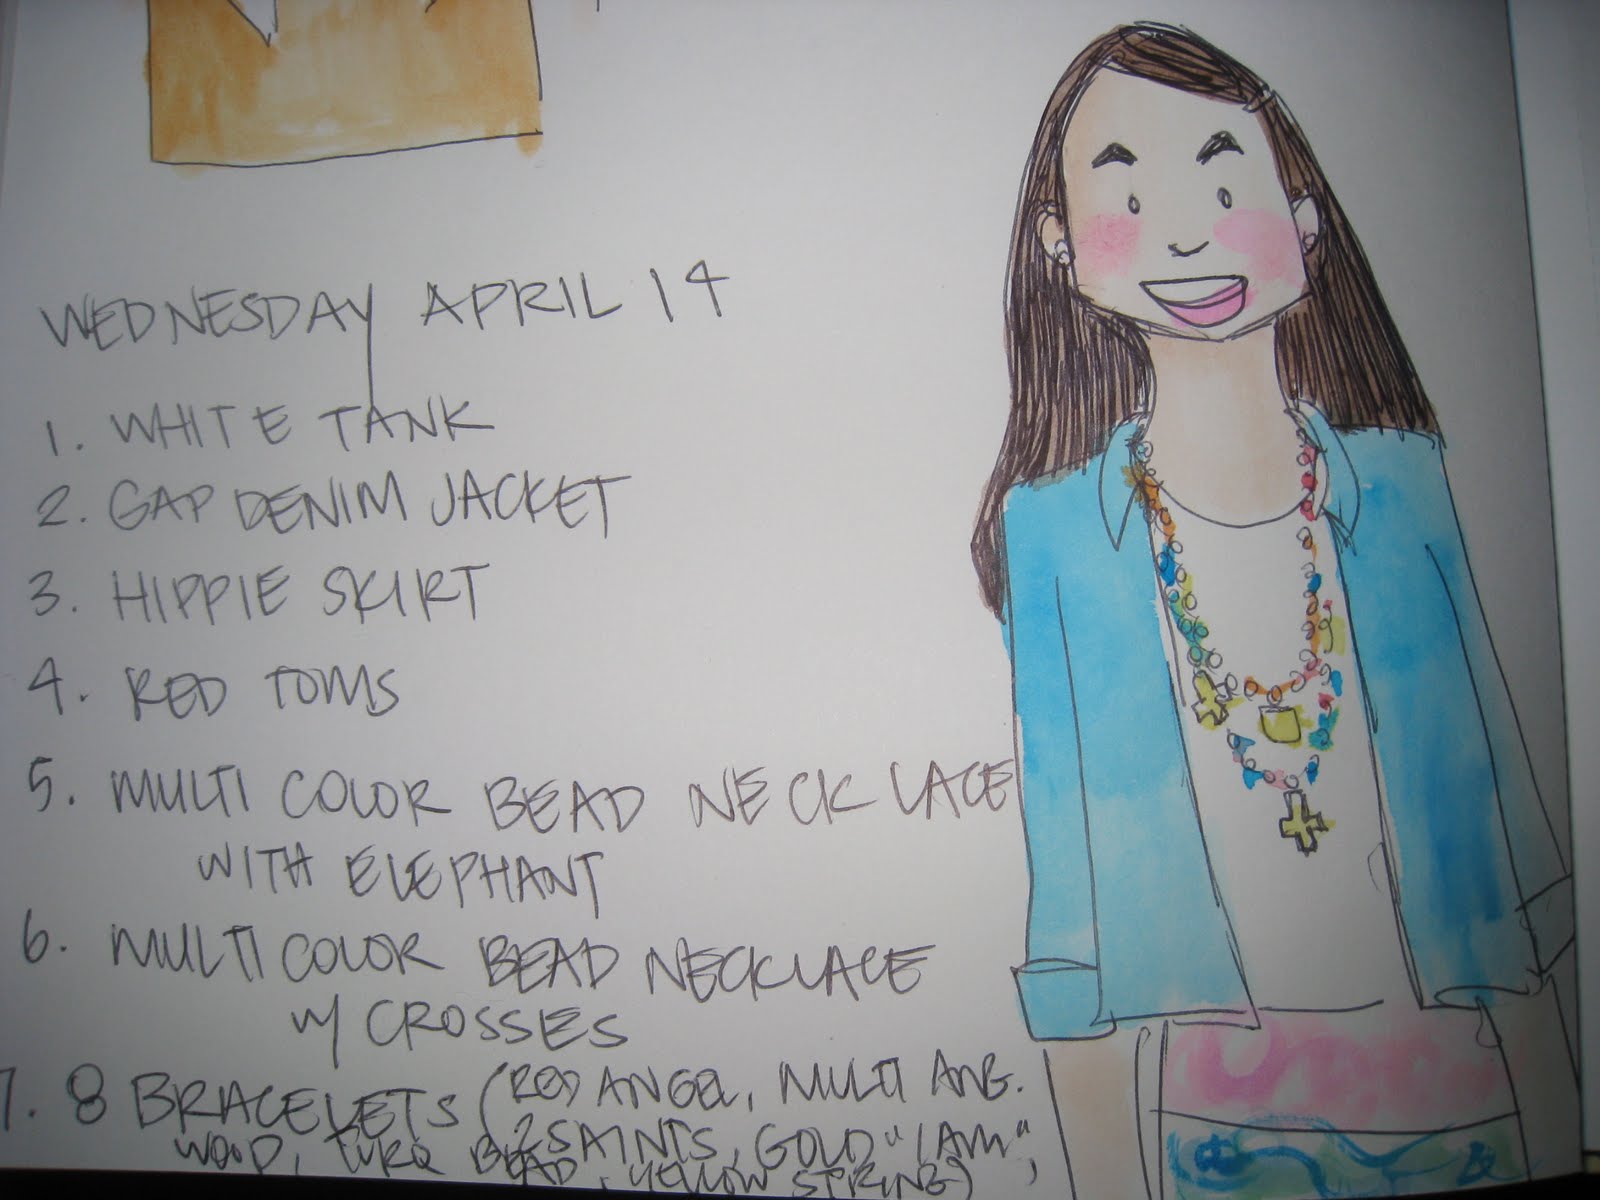 WEDNESDAY APRIL 14
1. WHITE TANK
2. GAP DENIM JACKET
3. HIPPIE SKIRT
4. RED TOMS
5. MULTI COLOR BEAD NECKLACE
WITH ELEPHANT
6. MULTI COLOR BEAD NECKLACE
W/ CROSSES
7. 8 BRACELETS (RED ANGEL, MULTI ANG.
2 SAINTS, GOLD "I AM",
WOOD, TURQ BEAD, YELLOW STRING)